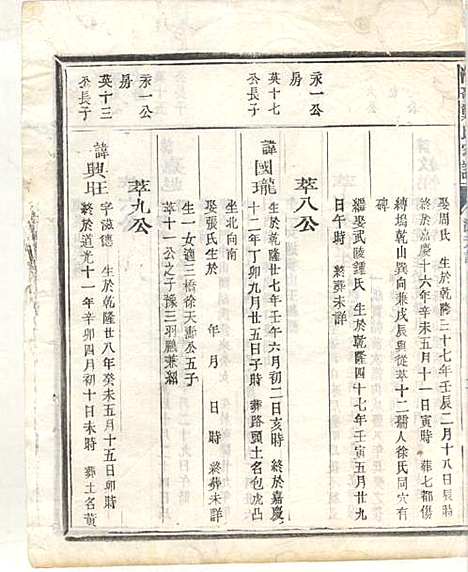 娶周氏 生於乾隆三十七年壬辰二月十八日辰時
終於嘉慶十六年辛未五月十一日寅時 葬七都傷
磚塢乾山巽向兼戊辰與從萃十二孺人徐氏同穴有
碑
繼娶武陵鍾氏 生於乾隆四十七年壬寅五月廿九
日午時 終葬未詳
永一公
房
英十七
公長子
萃八公
諱國瓏
生於乾隆廿七年壬午六月初二日亥時 終於嘉慶
十二年丁卯九月廿五日子時 葬路頭土名包虎凸
坐北向南
娶張氏生於 年 月 日 時 終葬未詳
生一女適三橋徐天壽公五子
萃十一公之子豫三羽鵬兼繼
永一公
房
英十三
公長子
萃九公
諱興旺
字滋德 生於乾隆廿八年癸未五月十五日卯時
終於道光十一年辛卯四月初十日未時 葬土名黃